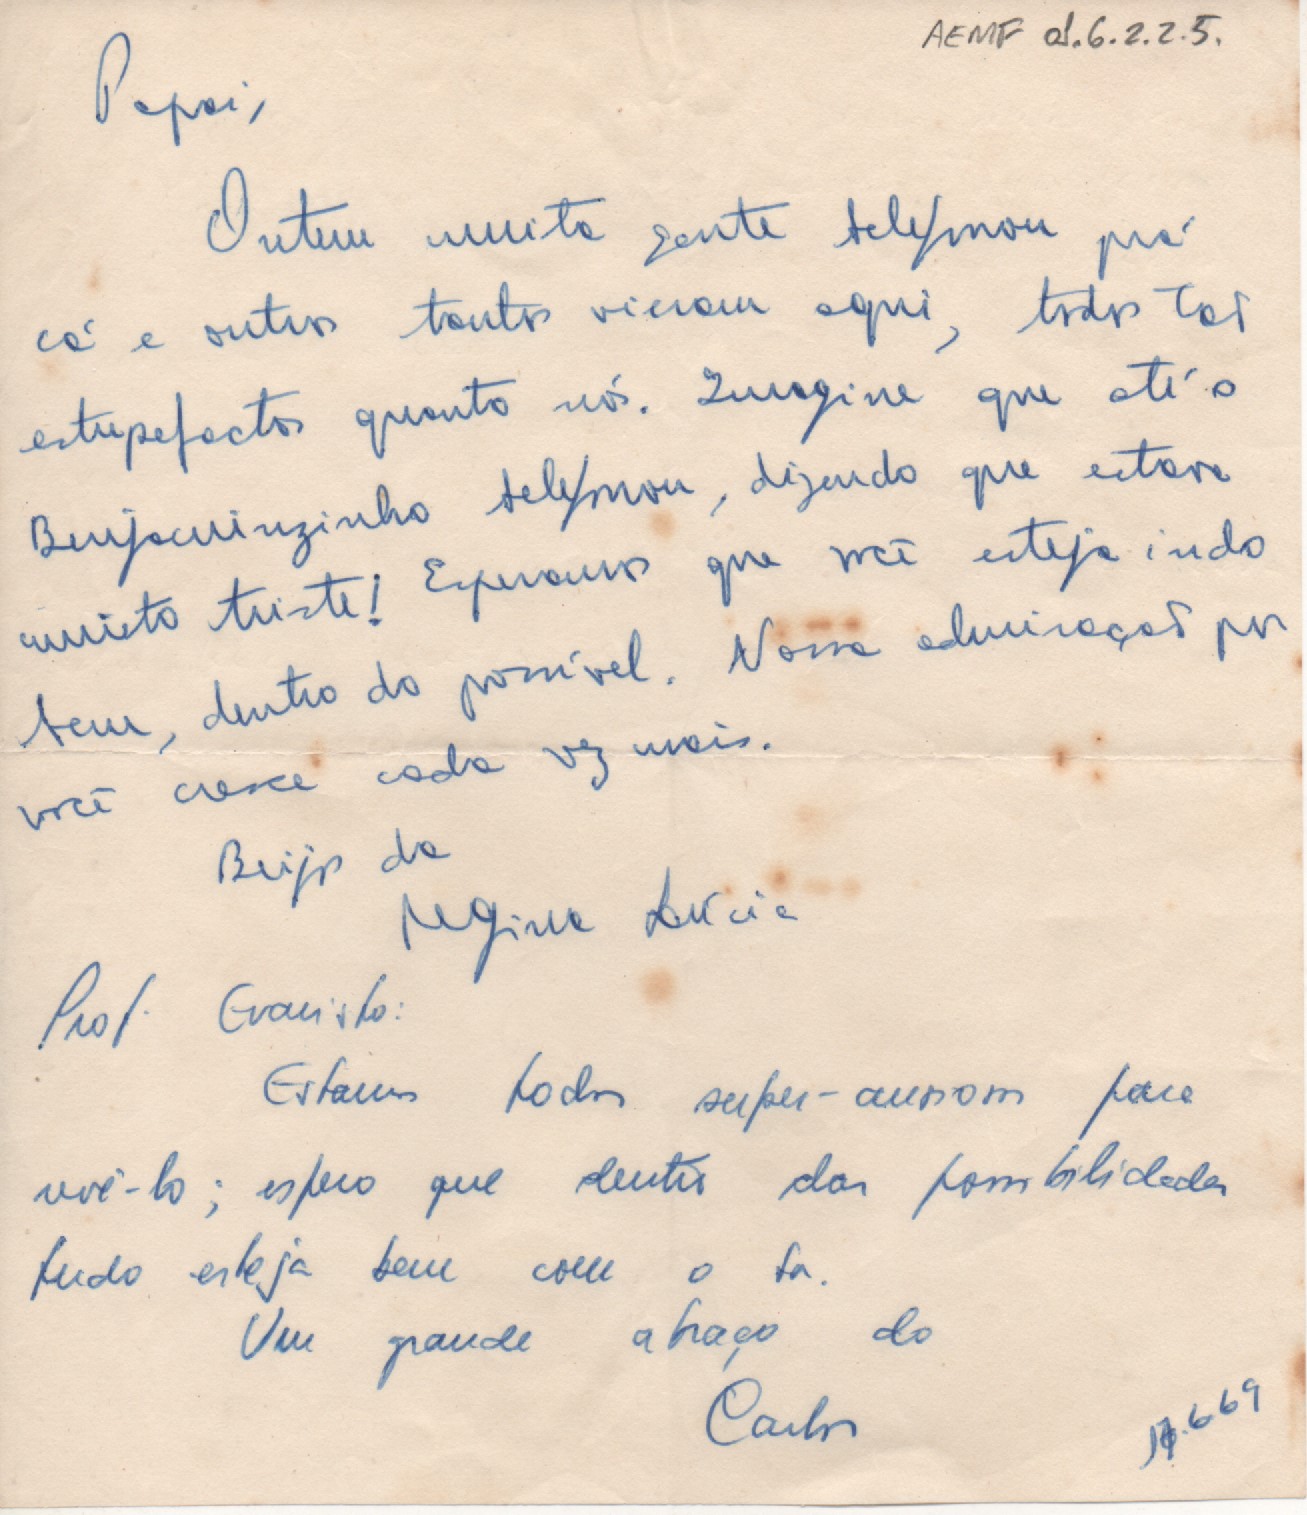 AEMF d.6.2.2.5.
Papai,
Ontem muita gente telefonou prá
cá e outros tantos vieram aqui, todos tão
estupefactos quanto nós. Imagine que até o
Benjaminzinho telefonou, dizendo que estava
muito triste! Esperamos que você esteja indo
bem, dentro do possível. Nossa admiração por
você cresce cada vez mais.
Beijos da
Regina Lúcia
Prof. Evaristo:
Estamos todos super-ansiosos para
vê-lo; espero que dentro das possibilidades
tudo esteja bem com o sr.
Um grande abraço do
Carlos
.6 69